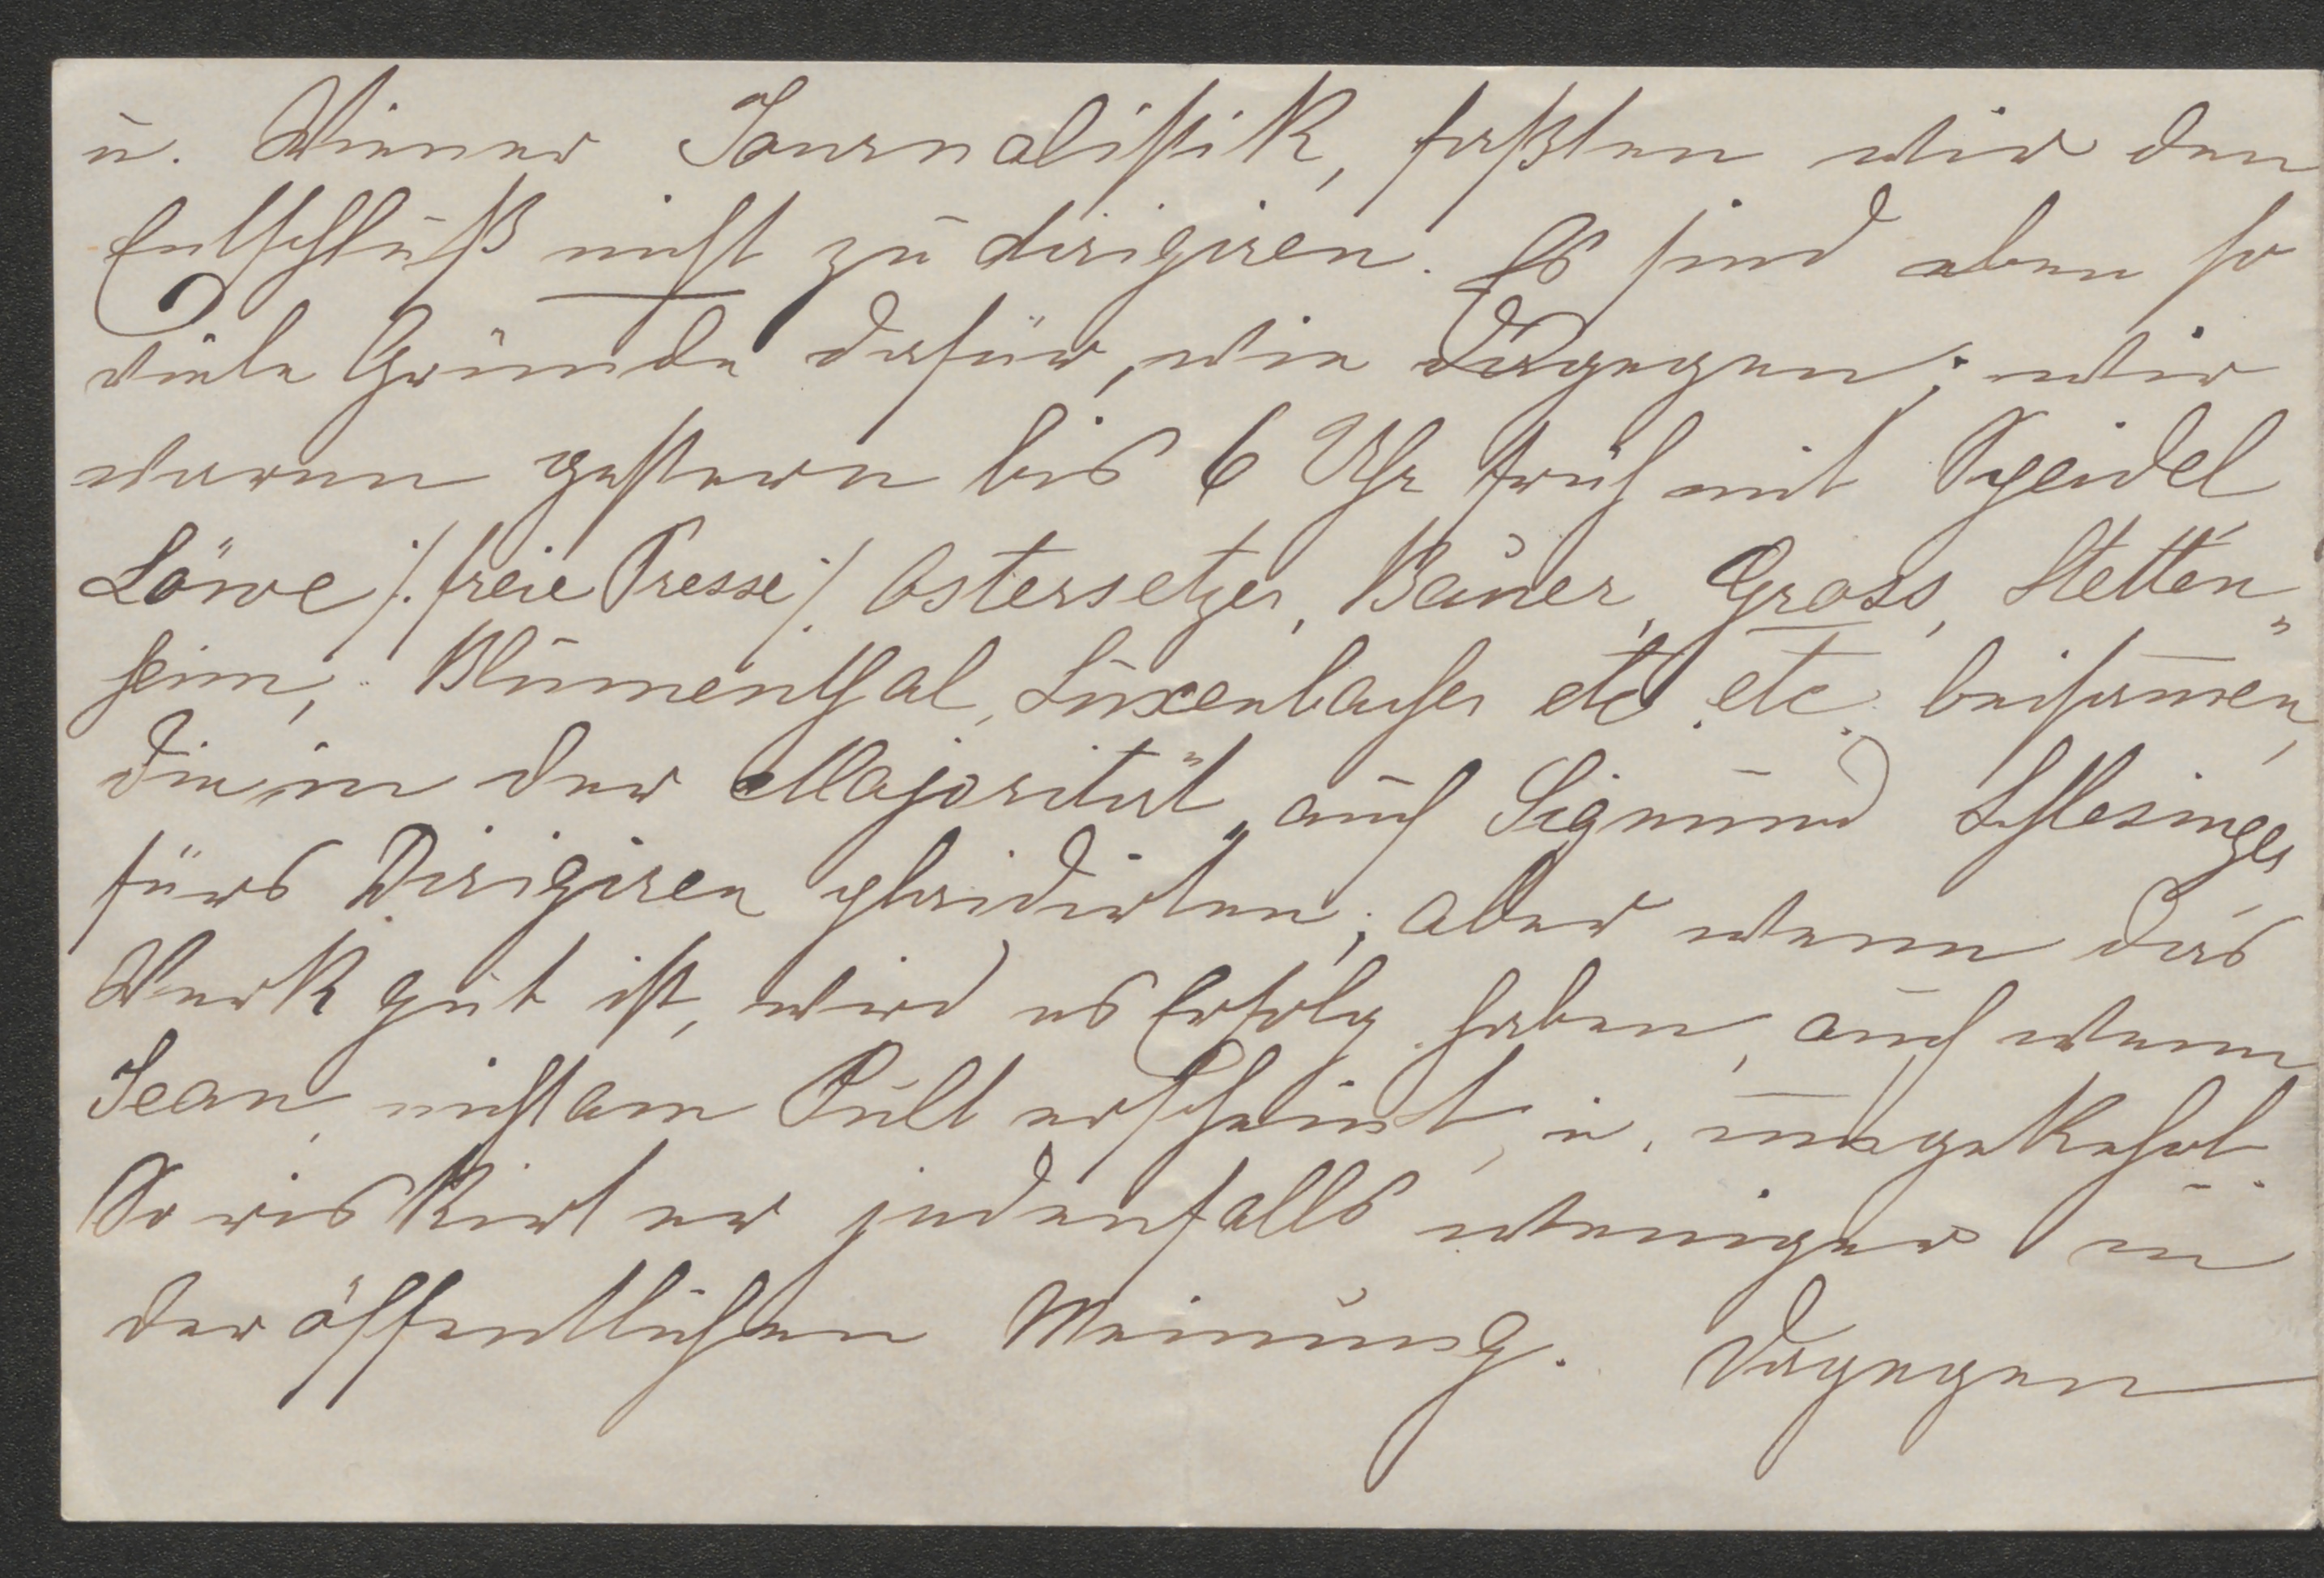 u. Wiener Journalistik, faßten wir den
Entschluß nicht zu dirigiren. Es sind eben so
viele Gründe dafür, wie dagegen; wir
waren gestern bis 6 Uhr früh mit Speidel
Löwe /: freie Presse :/ Ostersetzer, Bauer, Gross, Stetten„
heim, Blumenthal, Luxenbacher etc. etc. beisam̄en,
die in der Majorität, auch Sigmund Schlesinger
fürs Dirigiren plaidirten; aber wenn das
Werk gut ist, wird es Erfolg haben, auch wenn
Jean nicht am Pult erscheint, u. umgekehrt.
So riskirt er jedenfalls weniger in
der öffentlichen Meinung. Dagegen